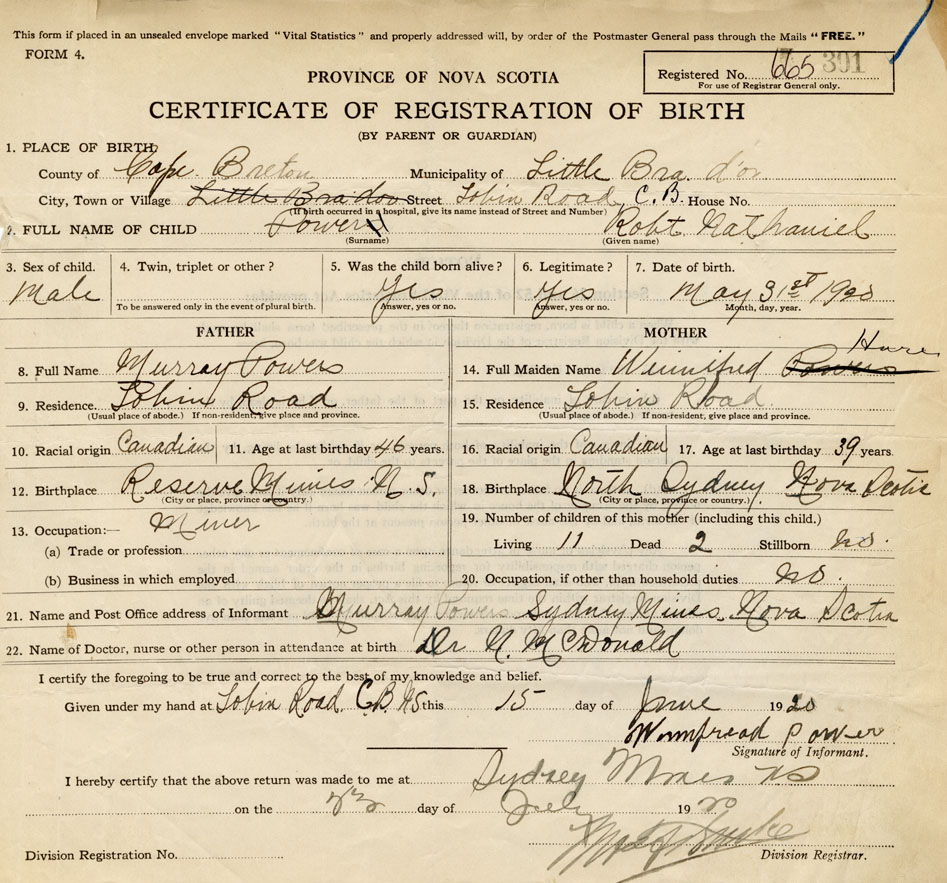 This form if placed in an unsealed envelope marked "Vital Statistics" and properly addressed will, by order of the Postmaster General pass through the Mails "FREE."
FORM 4.
PROVINCE OF NOVA SCOTIA
Registered No. 665 391
For use of Registrar General only.
CERTIFICATE OF REGISTRATION OF BIRTH
(BY PARENT OR GUARDIAN)
1. PLACE OF BIRTH,
County of Cape Breton Municipality of Little Bra d'or
City, Town or Village Little Bra dor Street Tobin Road, C.B. House No.
(If birth occurred in a hospital, give its name instead of Street and Number)
2. FULL NAME OF CHILD Power Robt Nathaniel
(Surname) (Given name)
3. Sex of child. 4. Twin, triplet or other? 5. Was the child born alive? 6. Legitimate? 7. Date of birth.
Male Yes Yes May 31st 1920
To be answered only in the event of plural birth. Answer, yes or no. Answer, yes or no. Month, day, year.
FATHER MOTHER
8. Full Name Murray Powers 14. Full Maiden Name Winnifred Powers
9. Residence. Tobin Road 15. Residence Tobin Road.
(Usual place of abode.) If non-resident, give place and province. (Usual place of abode.) If non-resident, give place and province.
10. Racial origin Canadian 11. Age at last birthday 46 years. 16. Racial origin Canadian 17. Age at last birthday 39 years.
12. Birthplace Reserve Mines N.S. 18. Birthplace North Sydney Nova Scotia
(City or place, province or country.) (City or place, province or country.)
13. Occupation:— Miner 19. Number of children of this mother (including this child.)
(a) Trade or profession Living 11 Dead 2 Stillborn no.
(b) Business in which employed 20. Occupation, if other than household duties no.
21. Name and Post Office address of Informant Murray Powers Sydney Mines. Nova Scotia
22. Name of Doctor, nurse or other person in attendance at birth Dr N. McDonald
I certify the foregoing to be true and correct to the best of my knowledge and belief.
Given under my hand at Tobin Road. C.B. NS this 15 day of June 1920
Winnfread Power
Signature of Informant.
I hereby certify that the above return was made to me at Sydney Mines NS
on the day of July 1920
Division Registration No. Division Registrar.